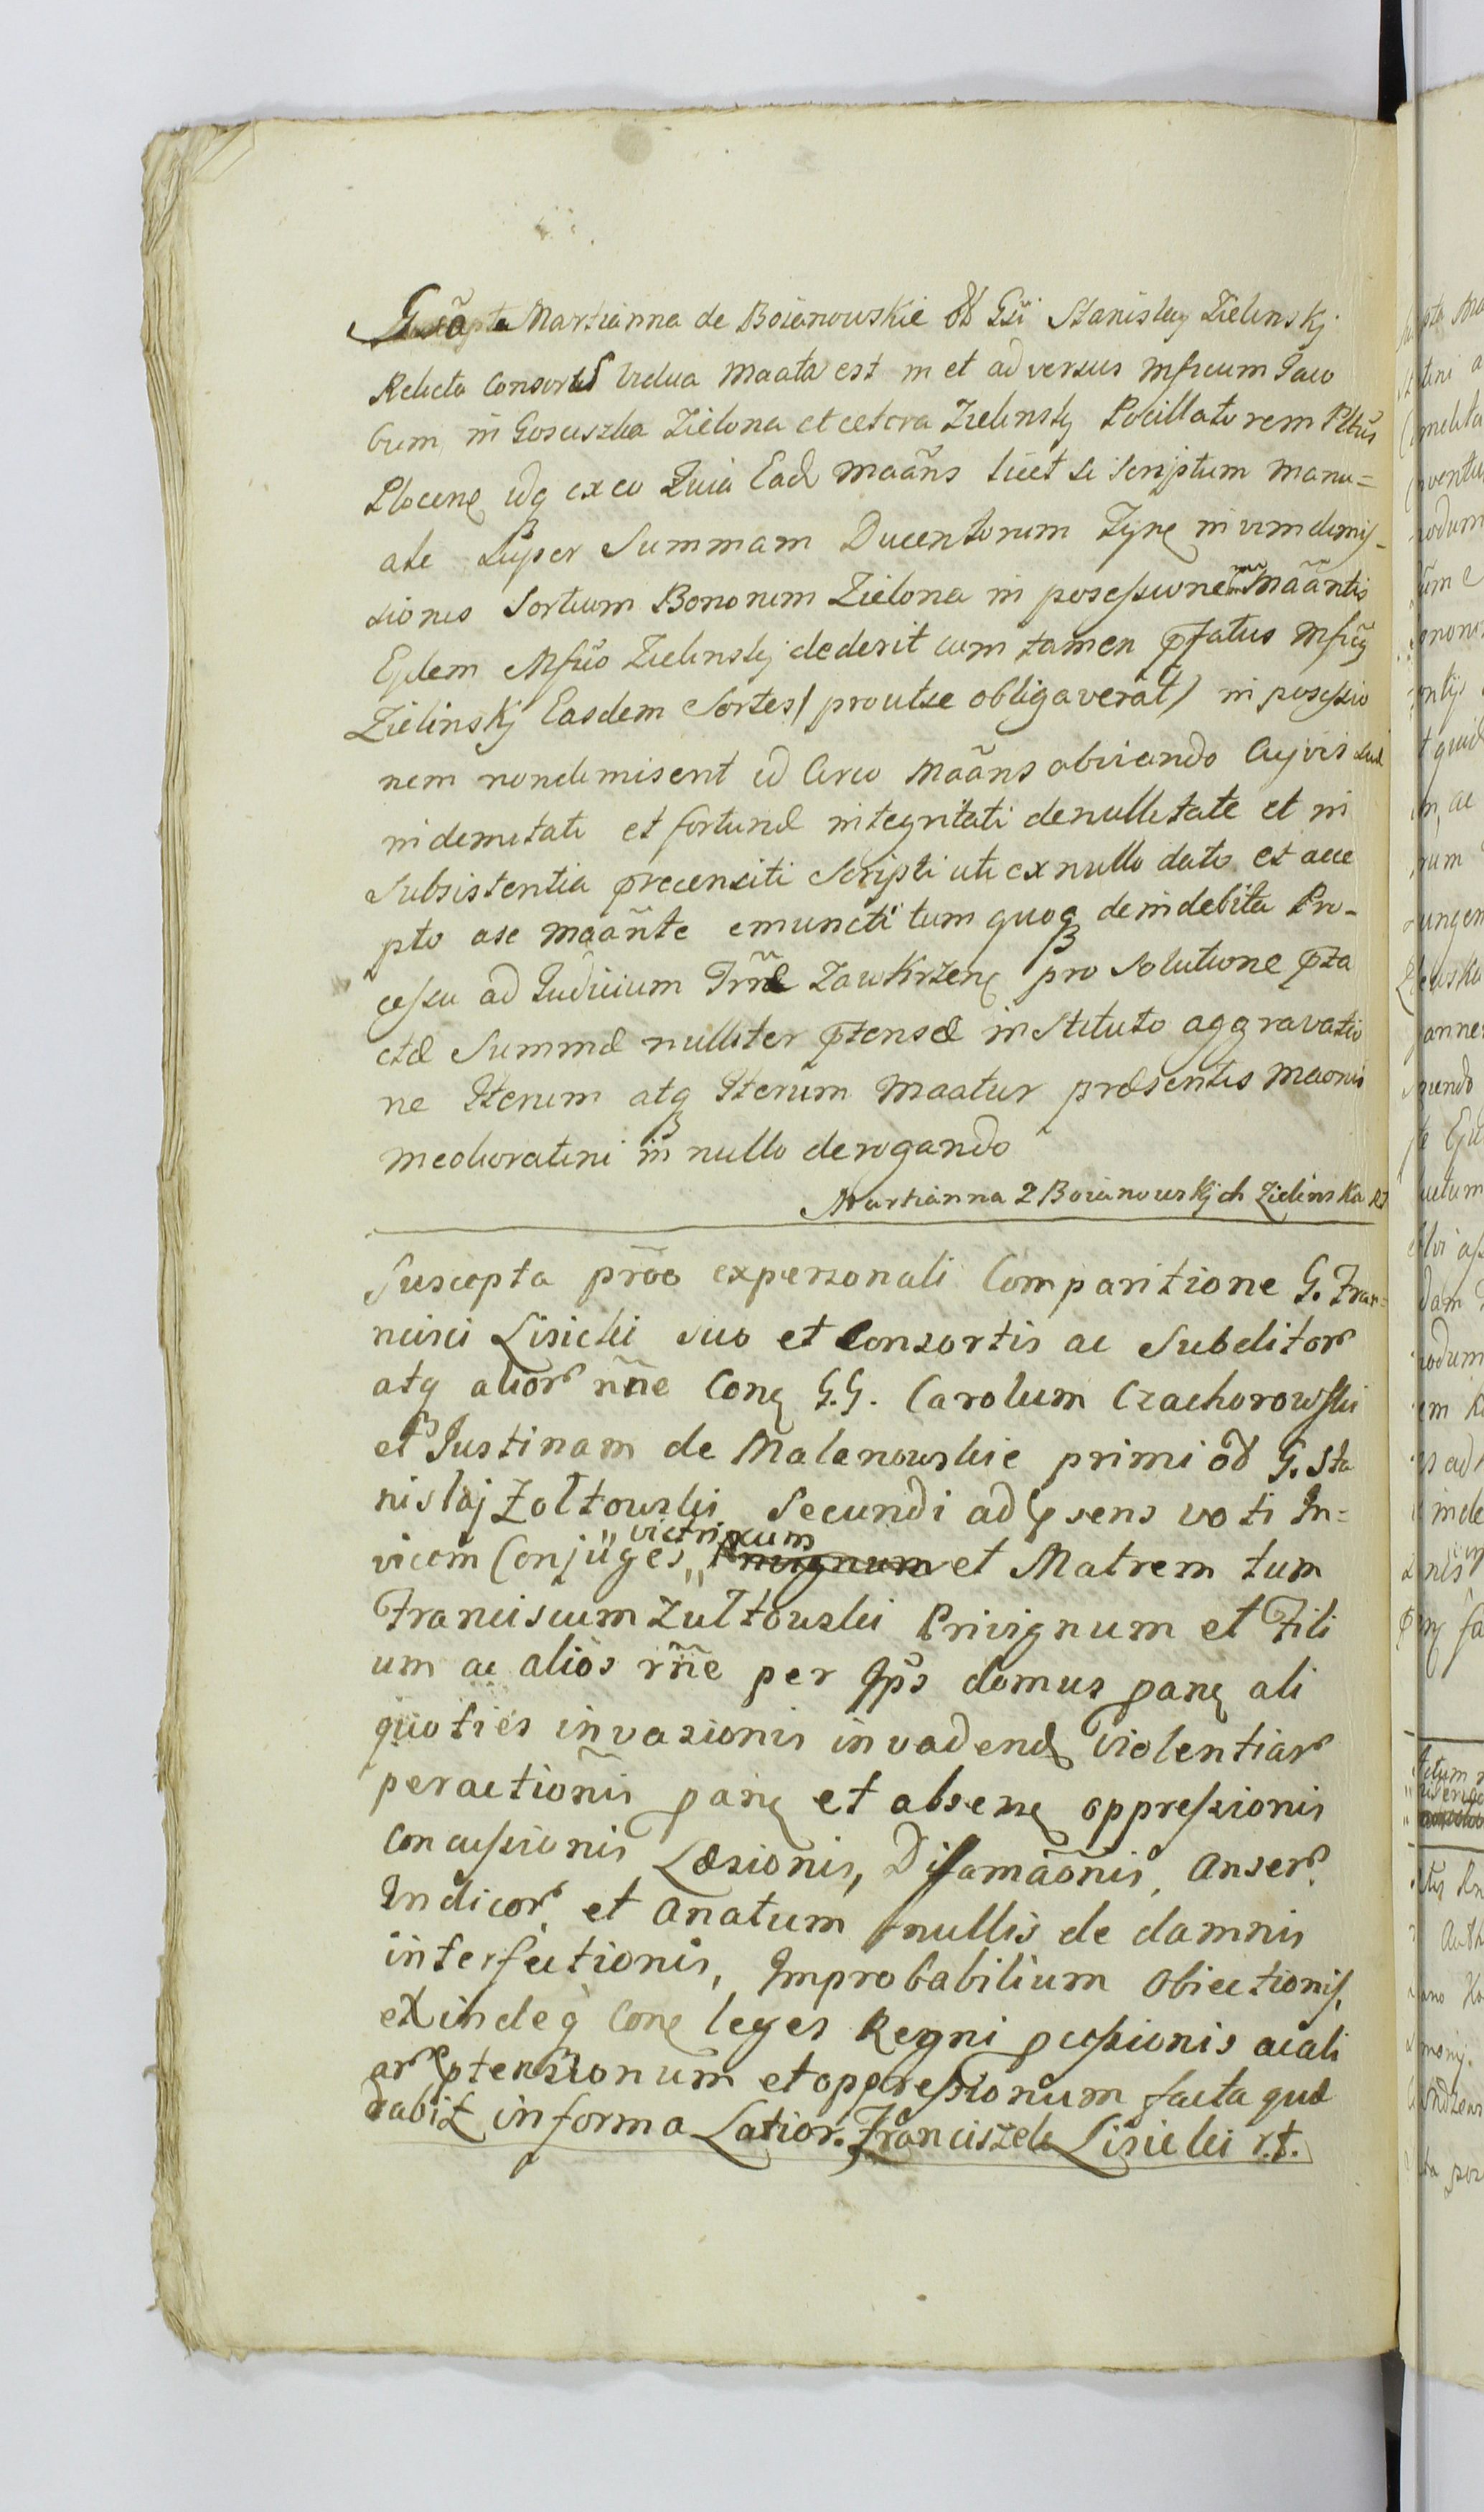 Gsa Martianna de Boianowskie ol Gsi Stanislaj Zielinskj
Relicta Consors Vidua Maata est in et adversus Mficum Jaco
bum, in Gosciszka Zielona et cetera Zielinskj Pocillatorem Pltūs
Plocenę idq ex eo Quia Ead Maãns licet se scriptum manu=
ale super Summam Ducentorum Tynę in vim dimis-
sionis Sortium Bonorum Zielona in posessionem Maãntis
Ejdem Mfico Zielinskj dederit cum tamen pfatus Mficq
Zielinskj Easdem Sortes/ prout se obligaverat/ in posessio
nem non dimiserit id Circo Maãns obviando Cujvis suæ
indemitati et fortunæ integritati de nullitate et in
Subsistentia precensiti Scripti uti ex nullo dato et acce
pto a se Maãnte emuncti tum quoq de indebita Pro-
cessu ad Judicium Trrñæ Zawkrzenę pro Solutione pta
ctæ Summæ nulliter ptensæ instituto aggravatio
ne Iterum atq Iterum Maatur præsentis Maonis
meolioratini in nullo derogando
Martianna z Boianowskjch Zielinska
Suscepta prõo ex personali Comparitione G. Fran=
ncisci Lisicki suo et Consortis ac Subditor
atq alior nñe Conę G.G. Carolum Czachorowski
et Justinam de Malanowskie primi ol G. Sta
nislaj Zołtowski Secundi ad psens voti In=
vicem Conjuges „ victricum „ Privignum et Matrem tum
Franciscum Zułtowski Privignum et Fili
um ac alios rñe per Ips domus panę ali
quoties invasionis invadendę Violentiar
peractionis panę et absenę oppressionis
concussionis Læsionis, Difamãonis, Anser.
Indicor. et Anatum nullis de damnis
interfectionis, Improbabilium Obiectionis,
exindeq Conę leges Regni pcessionis ac ali
ar ptensionum et oppressionum facta quæ
dabit in forma Latior. Franciszek Lisicki r.t.